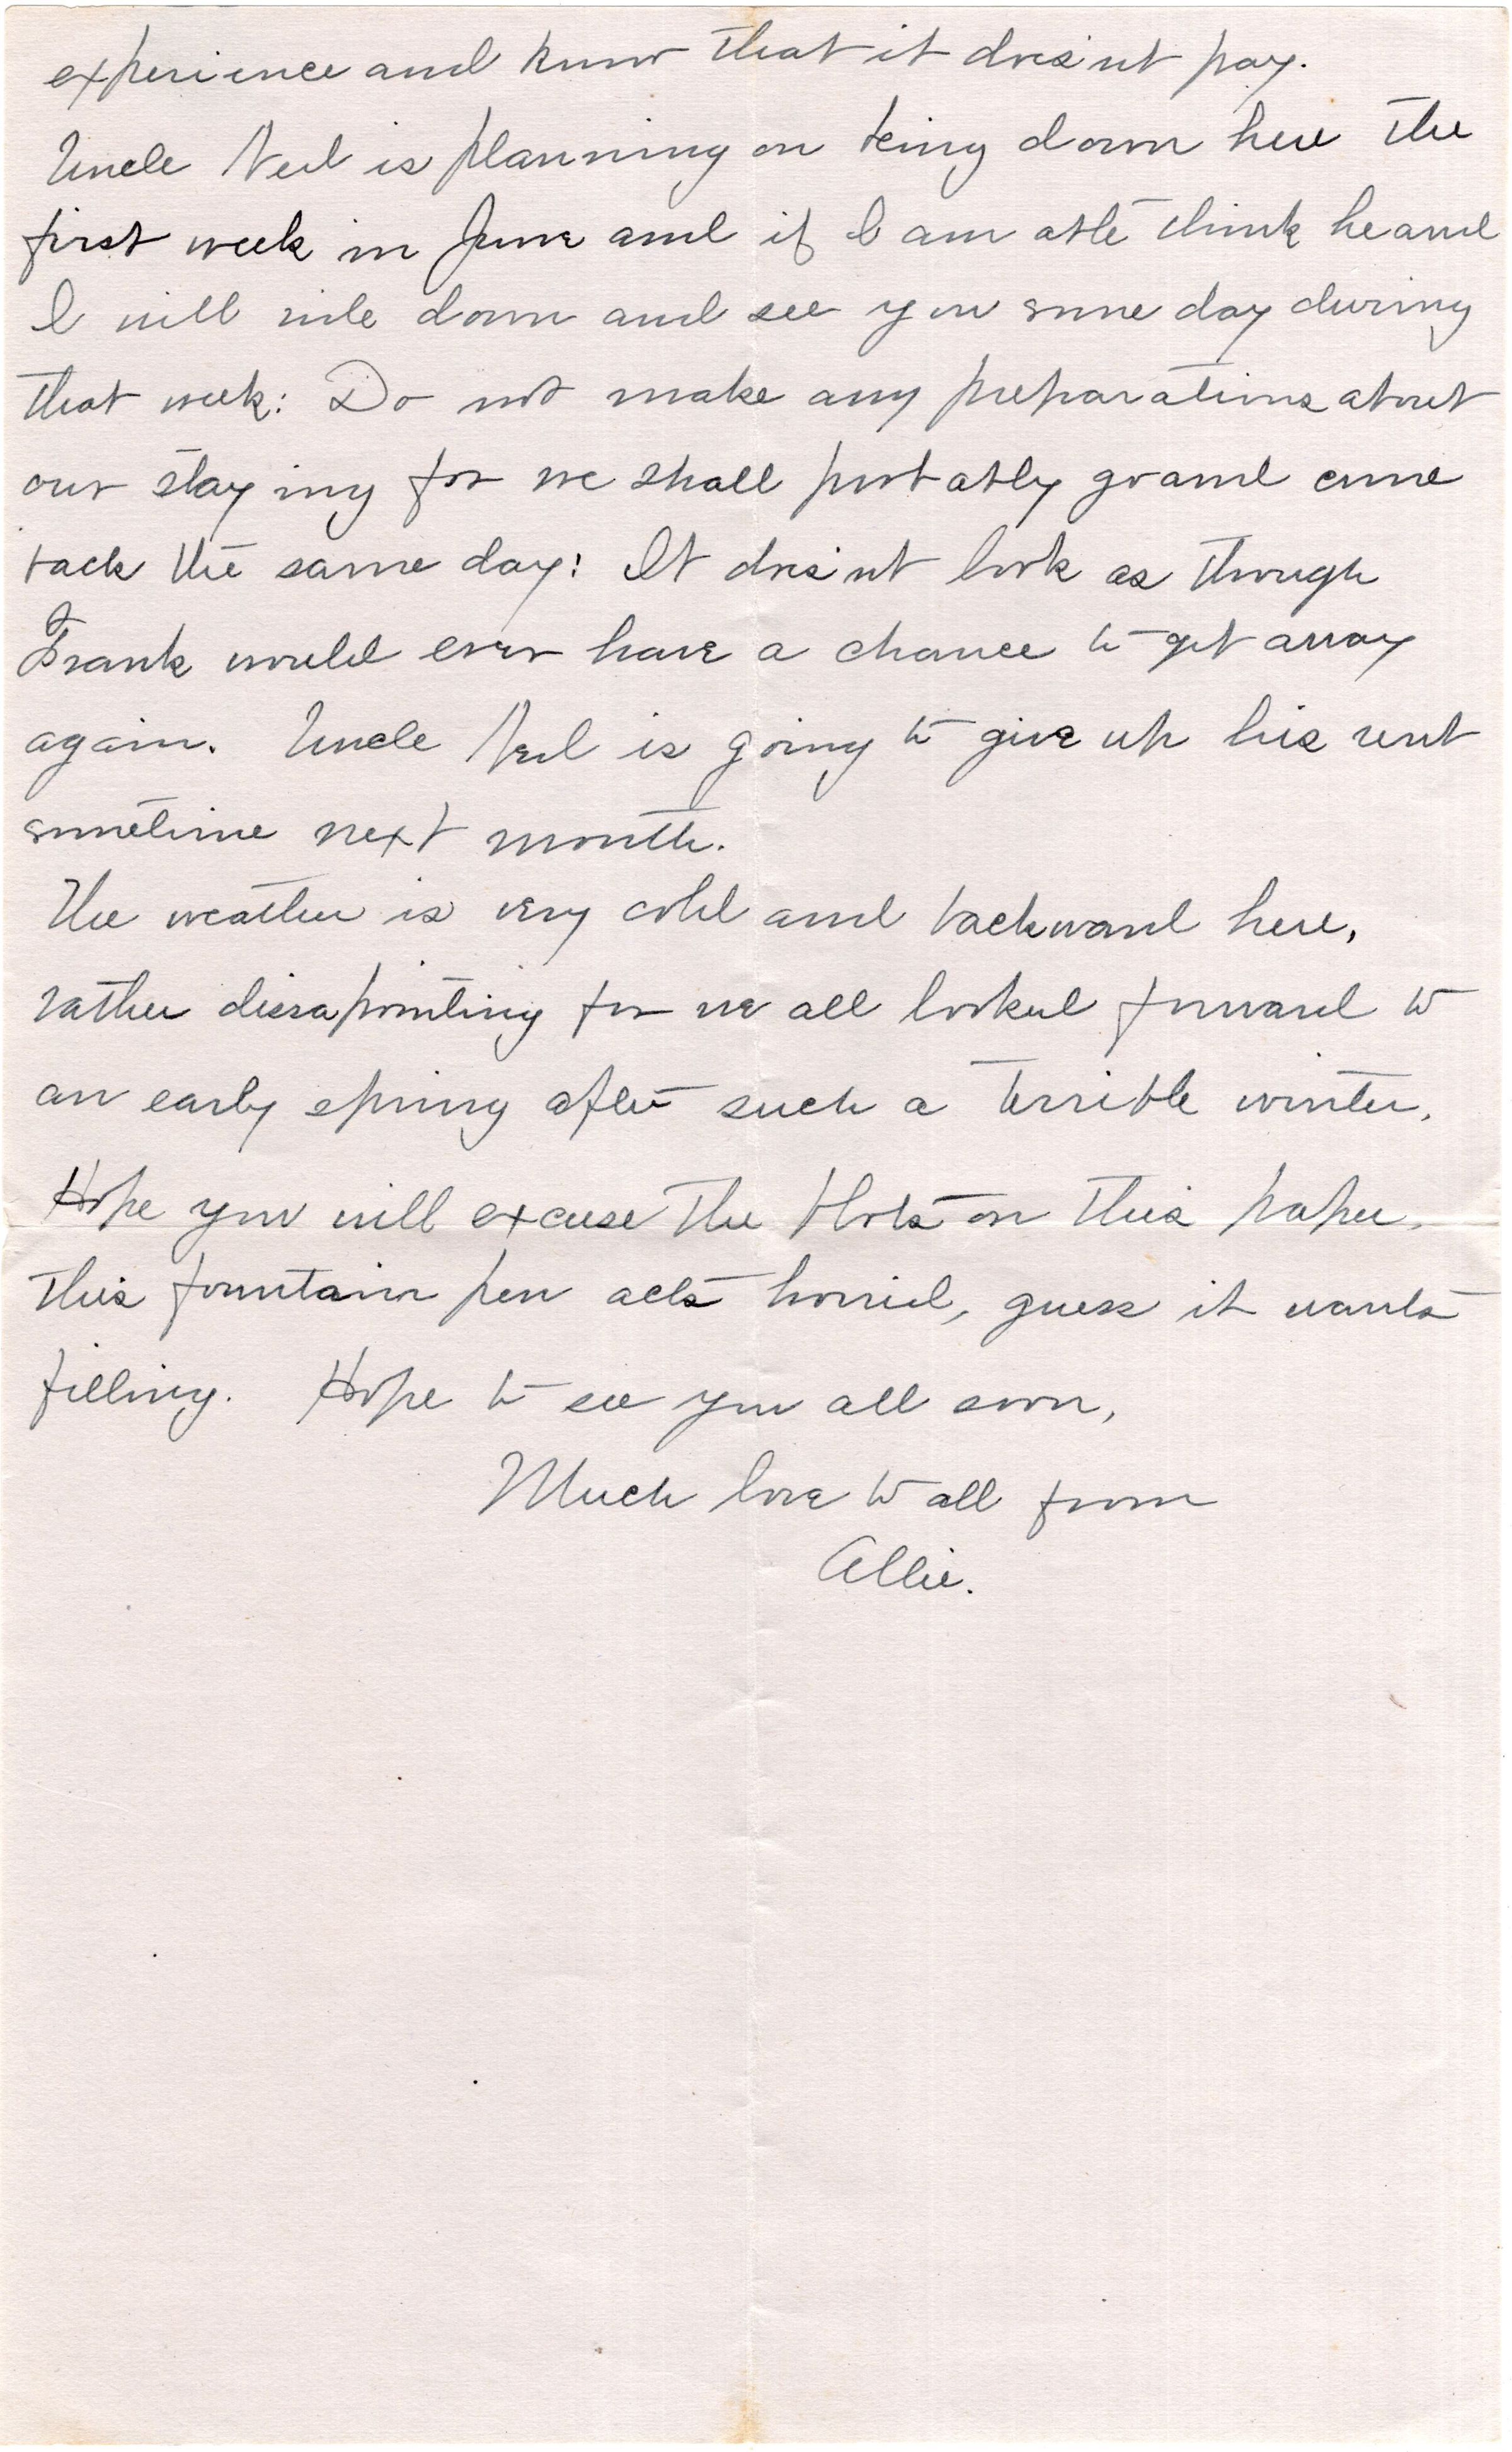 experience and know that it does'nt pay.
Uncle Neil is planning on being down here the
first week in June and if I am able think he and
I will ride down and see you some day during
that week: Do not make any preparations about
our staying for we shall probably go and come
back the same day: It does'nt look as though
Frank would ever have a chance to get away
again. Uncle Neil is going to give up his rent
sometime next month.
The weather is very cold and backward here,
rather dissapointing for we all looked forward to
an early spring after such a terrible winter.
Hope you will excuse the blots on this paper.
This fountain pen acts horrid, guess it wants
filling. Hope to see you all soon,
Much love to all from
Allie.